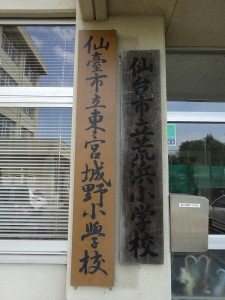 仙臺市立東宮城野小學校
仙台市立荒浜小学校